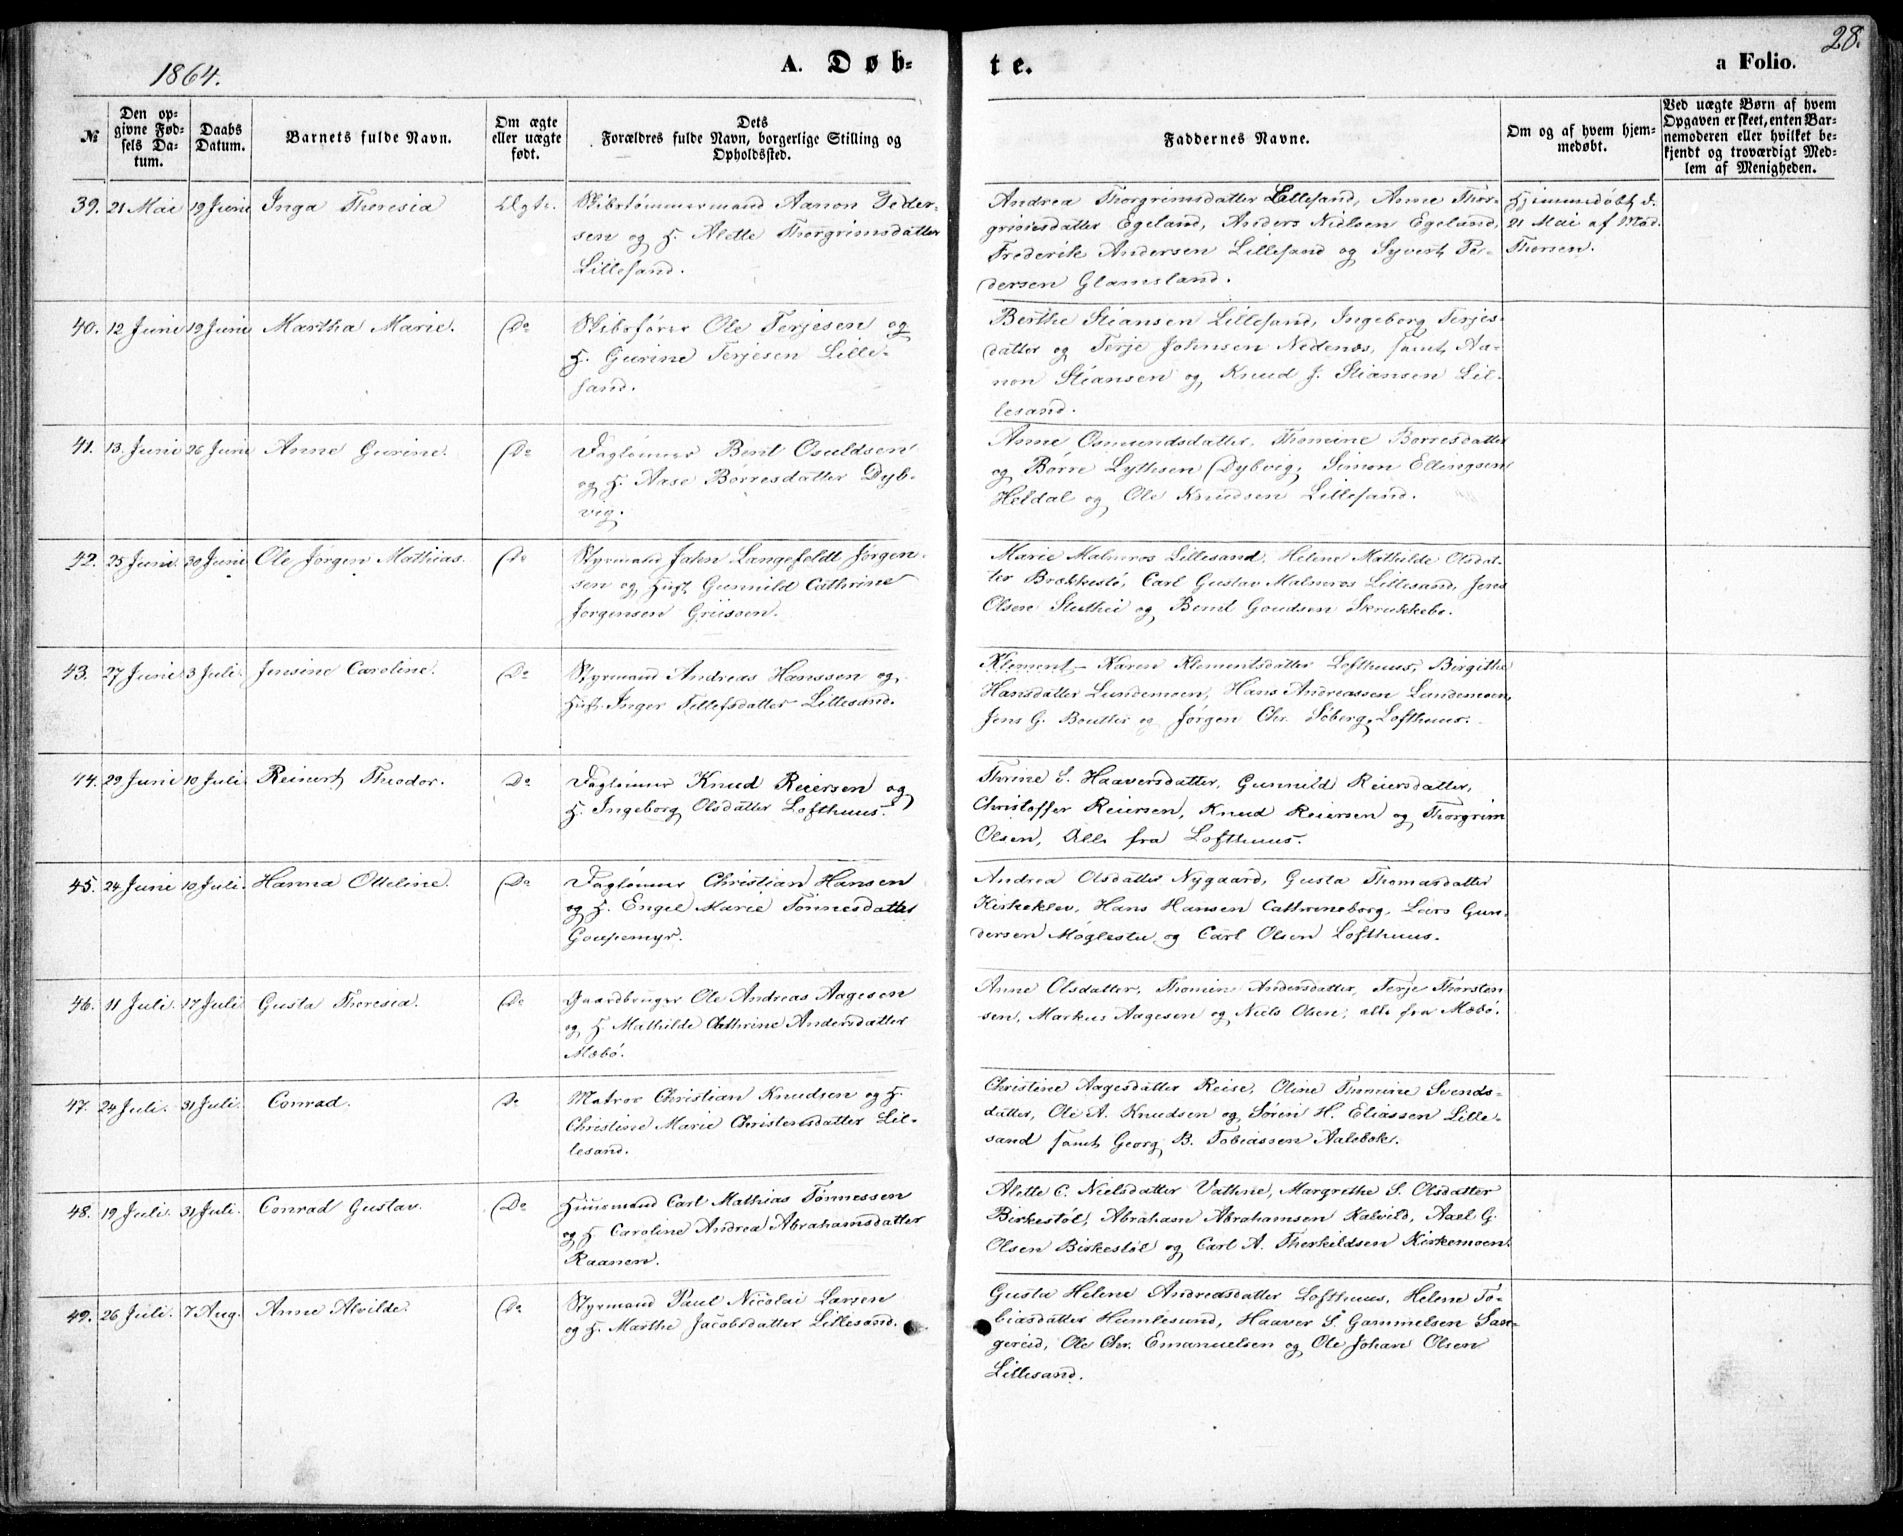 1864.
A. Døb-
te.
a Folio.
28.
№
Den op-
givne Fød-
sels Da-
tum.
Daabs
Datum.
Barnets fulde Navn.
Om ægte
eller uægte
født.
Dets
Forældres fulde Navn, borgerlige Stilling og
Opholdssted.
Faddernes Navne.
Om og af hvem hjem-
medøbt.
Ved uægte Børn af hvem
Opgaven er skeet, enten Bar-
nemoderen eller hvilket be-
kjendt og troværdigt Med-
lem af Menigheden.
39. 21 Mai 19 Juni Inga Theresia Ægte.
Skibstømmermand Aanon Peder-
sen og H. Alette Thorgrimsdatter
Lillesand.
Andrea Thorgrimsdatter Lillesand, Anne Thor-
grimsdatter Egeland, Anders Nielsen Egeland,
Frederik Andersen Lillesand og Syvert Pe-
dersen Glamsland.
Hjemmedøbt d.
21 Mai af Mad.
Thorsen.
40. 12 Juni 19 Juni Martha Marie. Do
Skibsfører Ole Terjesen og
H. Gurine Terjesen Lille-
sand.
Berthe Stiansen Lillesand, Ingeborg Terjes-
datter og Terje Johnsen Nedenæs, samt Aa-
non Stiansen og Knud J. Stiansen Lil-
lesand.
41. 13 Juni 26 Juni Anne Gurine. Do
Daglønner Berit Osuldsen
og H. Aase Børresdatter Dyb-
vig.
Anne Osmundsdatter, Thomine Børresdatter
og Børre Lyttesen Dybvig, Simon Ellingsen
Heldal og Ole Knudsen Lillesand.
42. 25 Juni. 30 Juni Ole Jørgen Mathias. Do
Styrmand Jahn Langefeldt Jørgen-
sen og Hust. Gunnild Cathrine
Jørgensen Griisøen.
Marie Malmros Lillesand, Helene Mathilde Olsdat-
ter Brækkestø, Carl Gustav Malmros Lillesand, Jens
Olsen og Bernt Goudsen Skrukkebo.
43. 27 Juni 3 Juli. Jensine Caroline. Do
Styrmand Andreas Hanssen og
Hust. Inger Tellefsdatter Lillesand.
Klement Karen Klementsdatter Lofthuus, Birgitte
Hansdatter Lundemoen, Hans Andreassen Lundemoen,
Jens G. og Jørgen Chr. Søberg, Lofthuus.
44. 29 Juni 10 Juli. Reinert Theodor. Do
Daglønner Knud Reiersen og
H. Ingeborg Olsdatter Lofthuus.
Thrine L. Haaversdatter, Gunnild Reiersdatter,
Christoffer Reiersen, Knud Reiersen og Thorgrim
Olsen, Alle fra Lofthuus.
45. 24 Juni 10 Juli. Hanna Otteline. Do
Daglønner Christian Hansen
og H. Engel Marie Tønnesdatter
Goupemyr.
Andrea Olsdatter Nygaard, Gusta Thomasdatter
Kirkeklev, Hans Hansen Cathrineborg, Lars Gun-
dersen Møglestu og Carl Olsen Lofthuus.
46. 11 Juli. 17 Juli. Gusta Theresia. Do
Gaardbruger Ole Andreas Aagesen
og H. Mathilde Cathrine Andersdatter
Mæbø.
Anne Olsdatter, Thomine Andersdatter, Terje Thorsten
sen, Markus Aagesen og Niels Olsen, alle fra Mæbø.
47. 24 Juli. 31 Juli. Conrad. Do
Matros Christian Knudsen og H.
Christine Marie Christensdatter Lil-
lesand.
Christine Aagesdatter Reise, Oline Thomine Svends-
datter, Ole A. Knudsen og Søren H. Eliassen Lille-
sand samt Georg B. Tobiassen Aalebæk.
48. 19 Juli. 31 Juli. Conrad Gustav. Do
Huusmand Carl Mathias Tønnessen
og H. Caroline Andrea Abrahamsdatter
Raanen.
Alette C. Nielsdatter Vathne, Margrethe S. Olsdatter
Birkestøl, Abraham Abrahamsen Kalvild, Axel G.
Olsen Birkestøl og Carl A. Therkildsen Kirkemoen.
49. 26 Juli. 7 Aug. Anne Alvilde. Do
Styrmand Paul Nicolai Larsen
og H. Marthe Jacobsdatter Lillesand.
Gusta Helene Andreasdatter Lofthuus, Helene To-
biasdatter Humlesund, Haaver S. Gammelsen San-
gereid, Ole Chr. Emanuelsen og Ole Johan Olsen
Lillesand.